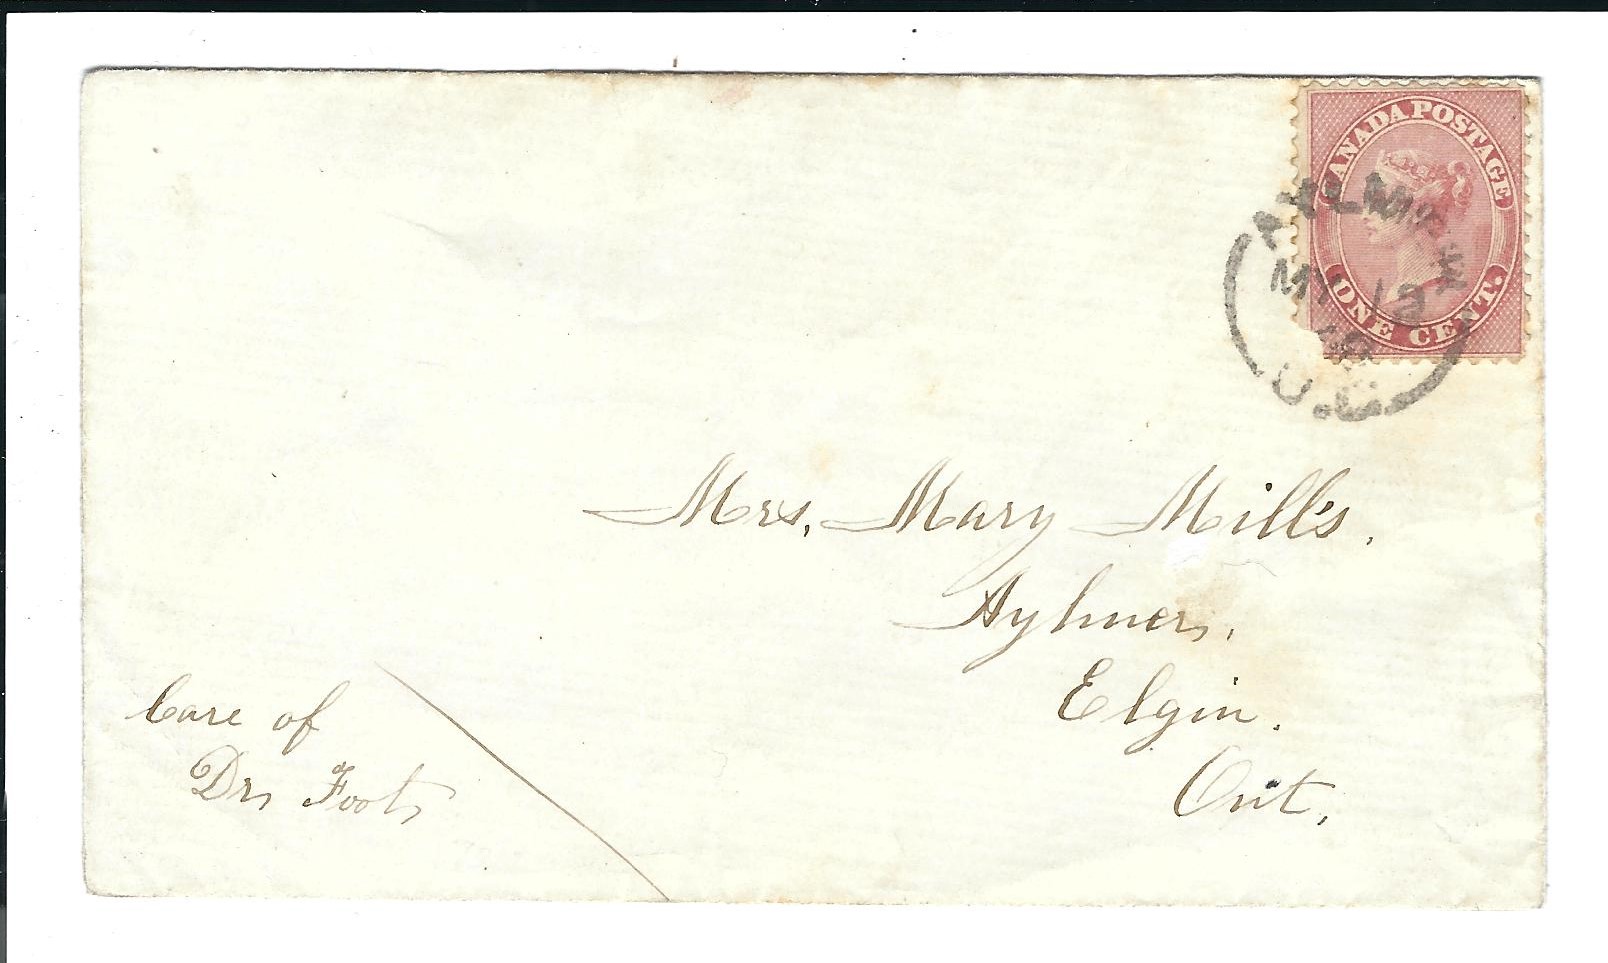 CANADA POSTAGE
ONE CENT.
MY 19
U.C
Mrs, Mary Mill's,
Aylmer,
Elgin.
Ont,
Care of
Dr, Foot,